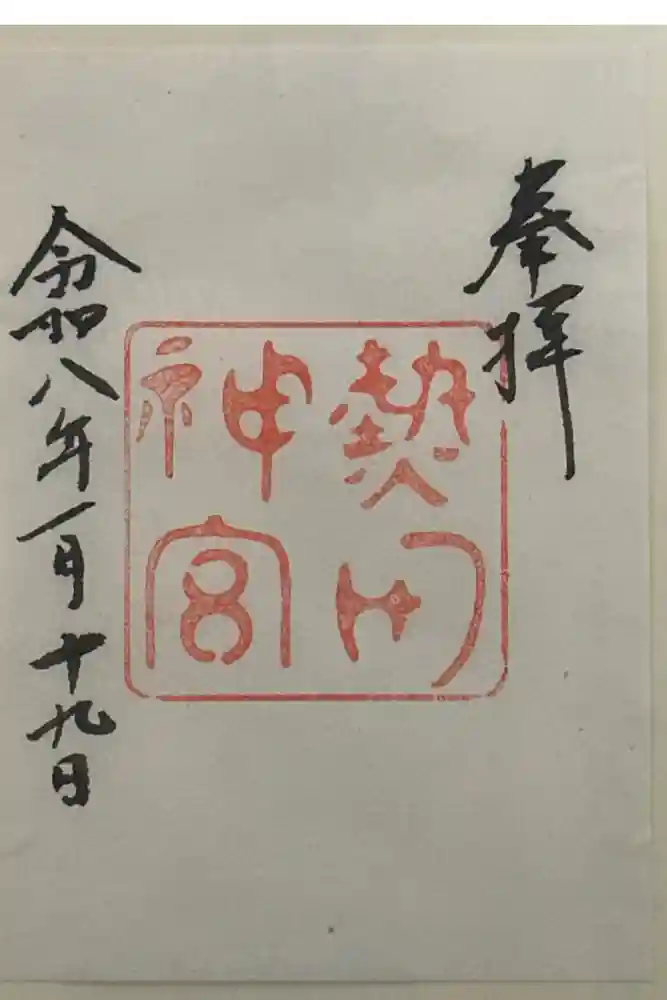 奉拝
熱田
神宮
令和八年一月十九日